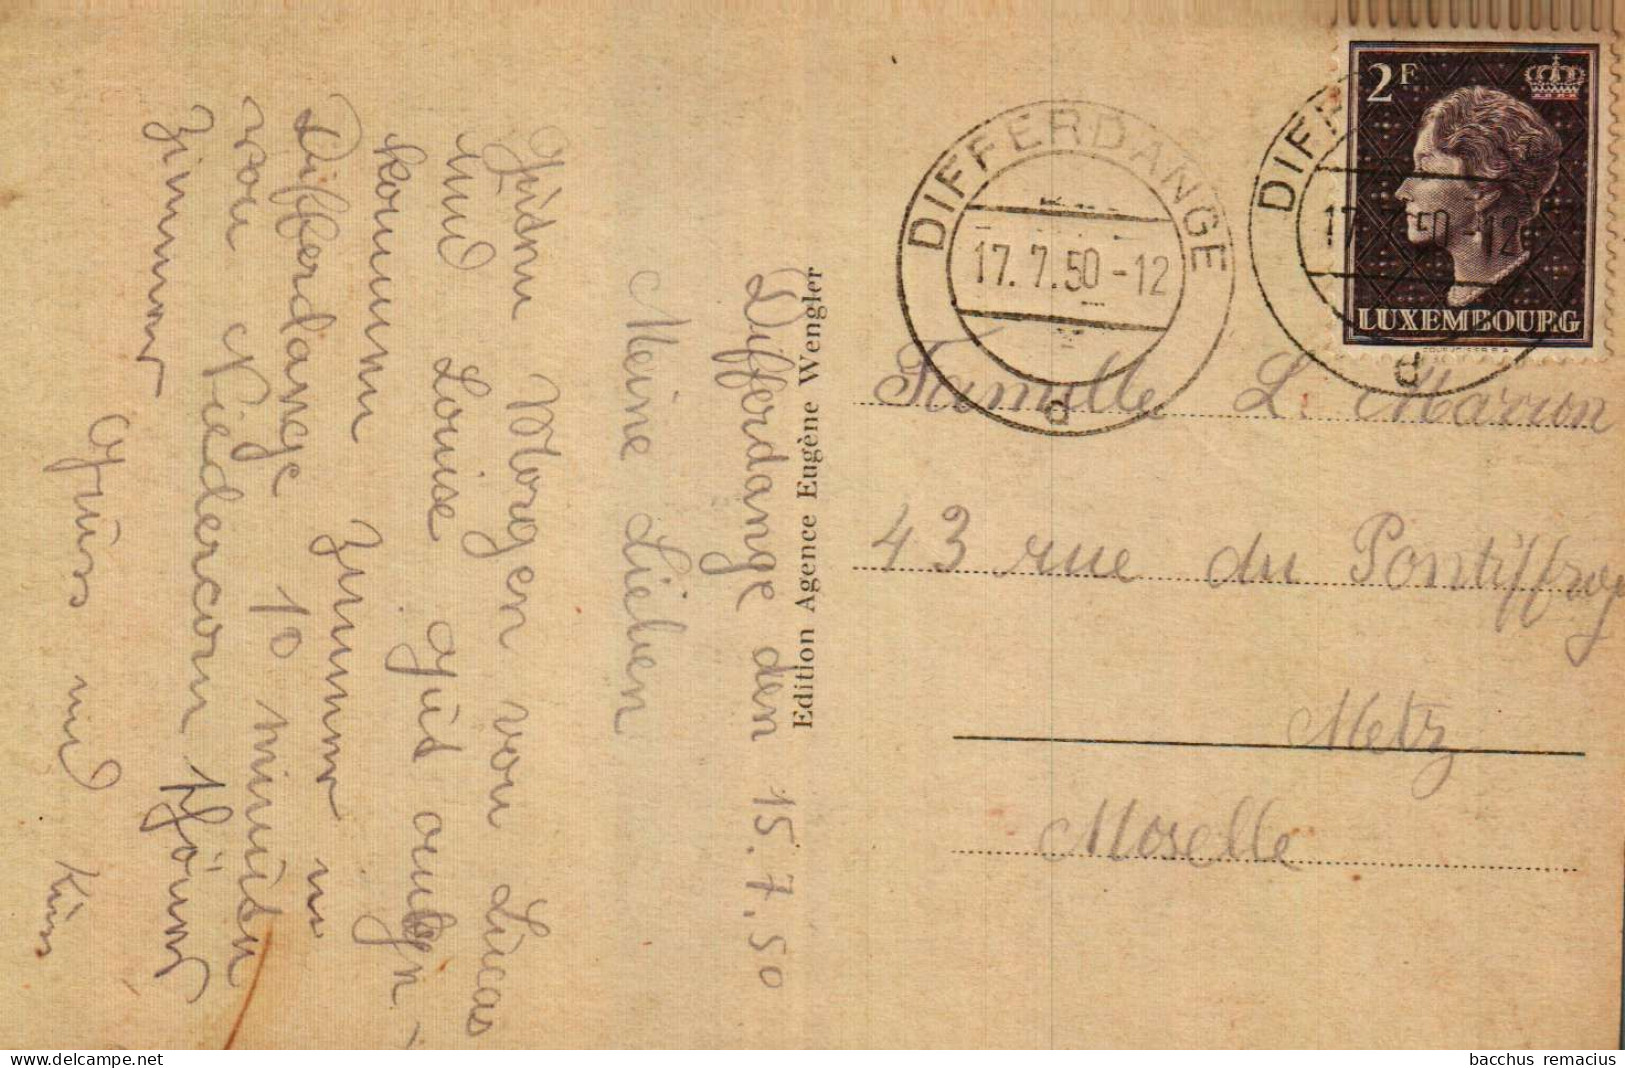 Differdange den 15.7.50
Meine Lieben
Morgen von Lucas
und Louise gut
kommen Zimmer in
Differdange 10 minuten
von Niedercorn
Zimmer
Gruss und
Edition Agence Eugène Wengler
DIFFERDANGE
17.7.50-12
d
DIFF
17.7.50-12
d
2F
LUXEMBOURG
Famille L. Marion
43 rue du Pontiffroy
Metz
Moselle
delcampe.net
bacchus remacius